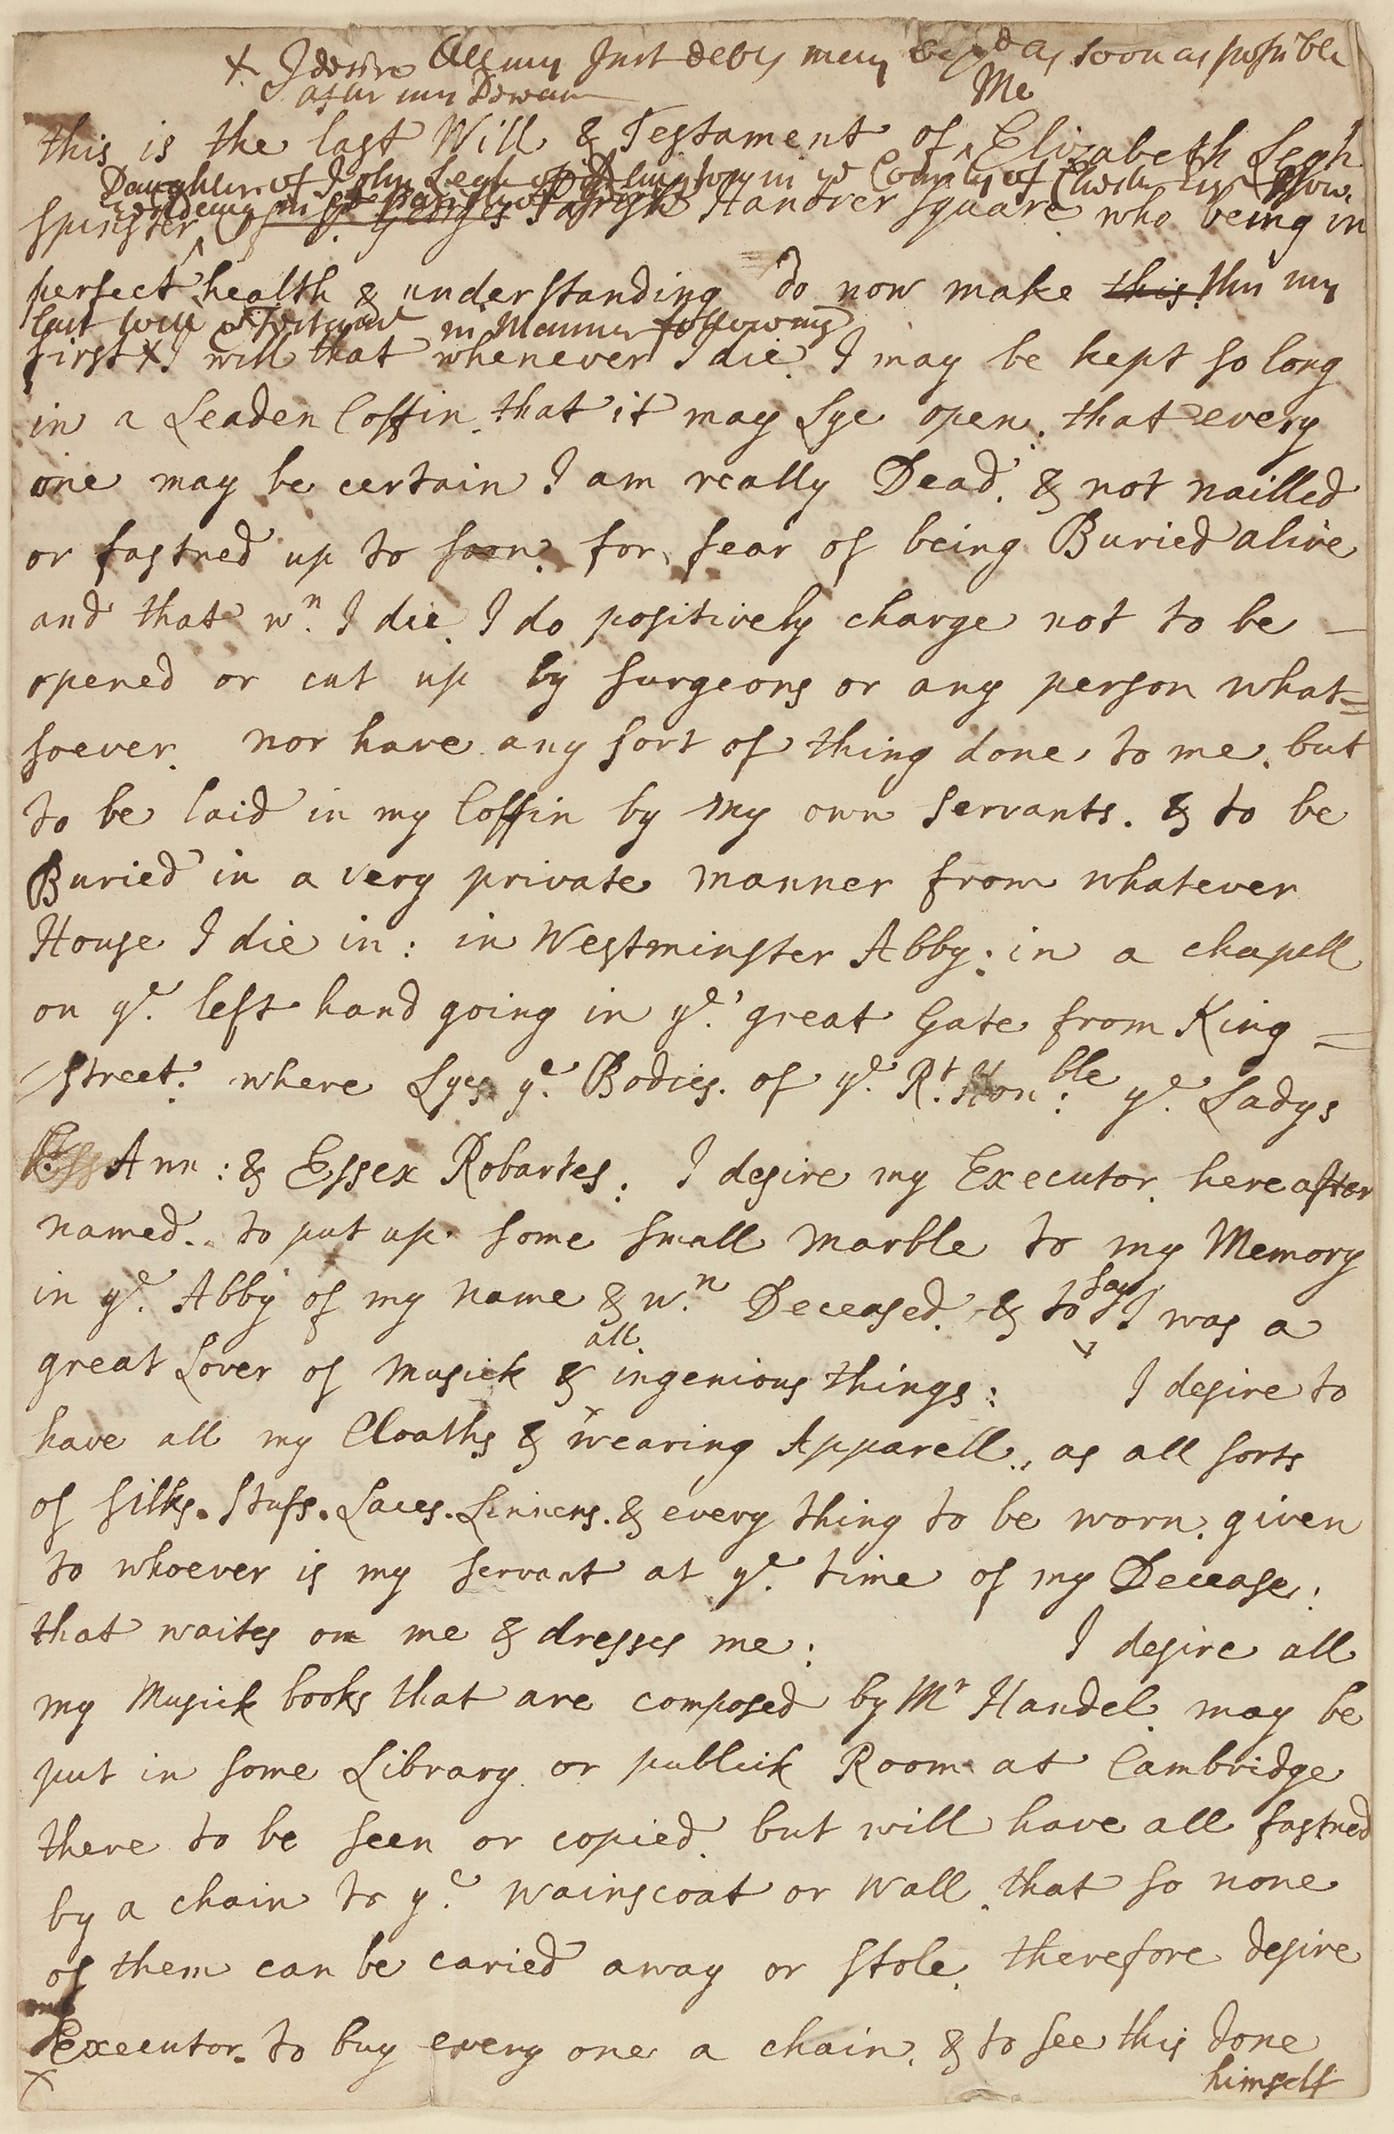 x I desire All my Just debts may be pd as soon as possible
after my Decease
Me
this is the last Will & Testament of ^ Elizabeth Legh
Daughter of John Legh of Adlington in ye County of Chester Esqr now
residing in ye parish of
Spinster of St. Georges Parish Hanover square who being in
perfect health & understanding do now make this this my
last will & Testament in Manner following
first x I will that whenever I die. I may be kept so long
in a Leaden Coffin. that it may Lye open. that every
one may be certain I am really Dead. & not nailled
or fastned up to soon. for fear of being Buried alive
and that wn. I die. I do positively charge not to be —
opened or cut up by surgeons or any person what=
soever. nor have any sort of thing done to me. but
to be laid in my Coffin by my own servants. & to be
Buried in a very private manner from whatever
House I die in: in Westminster Abby: in a chapell
on ye. left hand going in ye. great Gate from King =
street. where Lyes ye. Bodies. of ye. Rt. Honble: ye. Ladys
Ann: & Essex Robartes: I desire my Executor. hereafter
named. to put up some small marble to my Memory
in ye. Abby of my name & wn. Deceased. & to say I was a
all
great Lover of Musick & ^ ingenious things: I desire to
have all my Cloaths & wearing Apparell. as all sorts
of silks. stufs. Laces. Linnens. & every thing to be worn. given
to whoever is my servant at ye. time of my Decease:
that waites on me & dresses me: I desire all
my Musick books that are composed by Mr Handel. may be
put in some Library. or publick Room at Cambridge
there to be seen or copied. but will have all fastned
by a chain to ye. wainscoat or wall. that so none
of them can be caried away or stole. therefore desire
my
Executor. to buy every one a chain. & to see this done
x himself